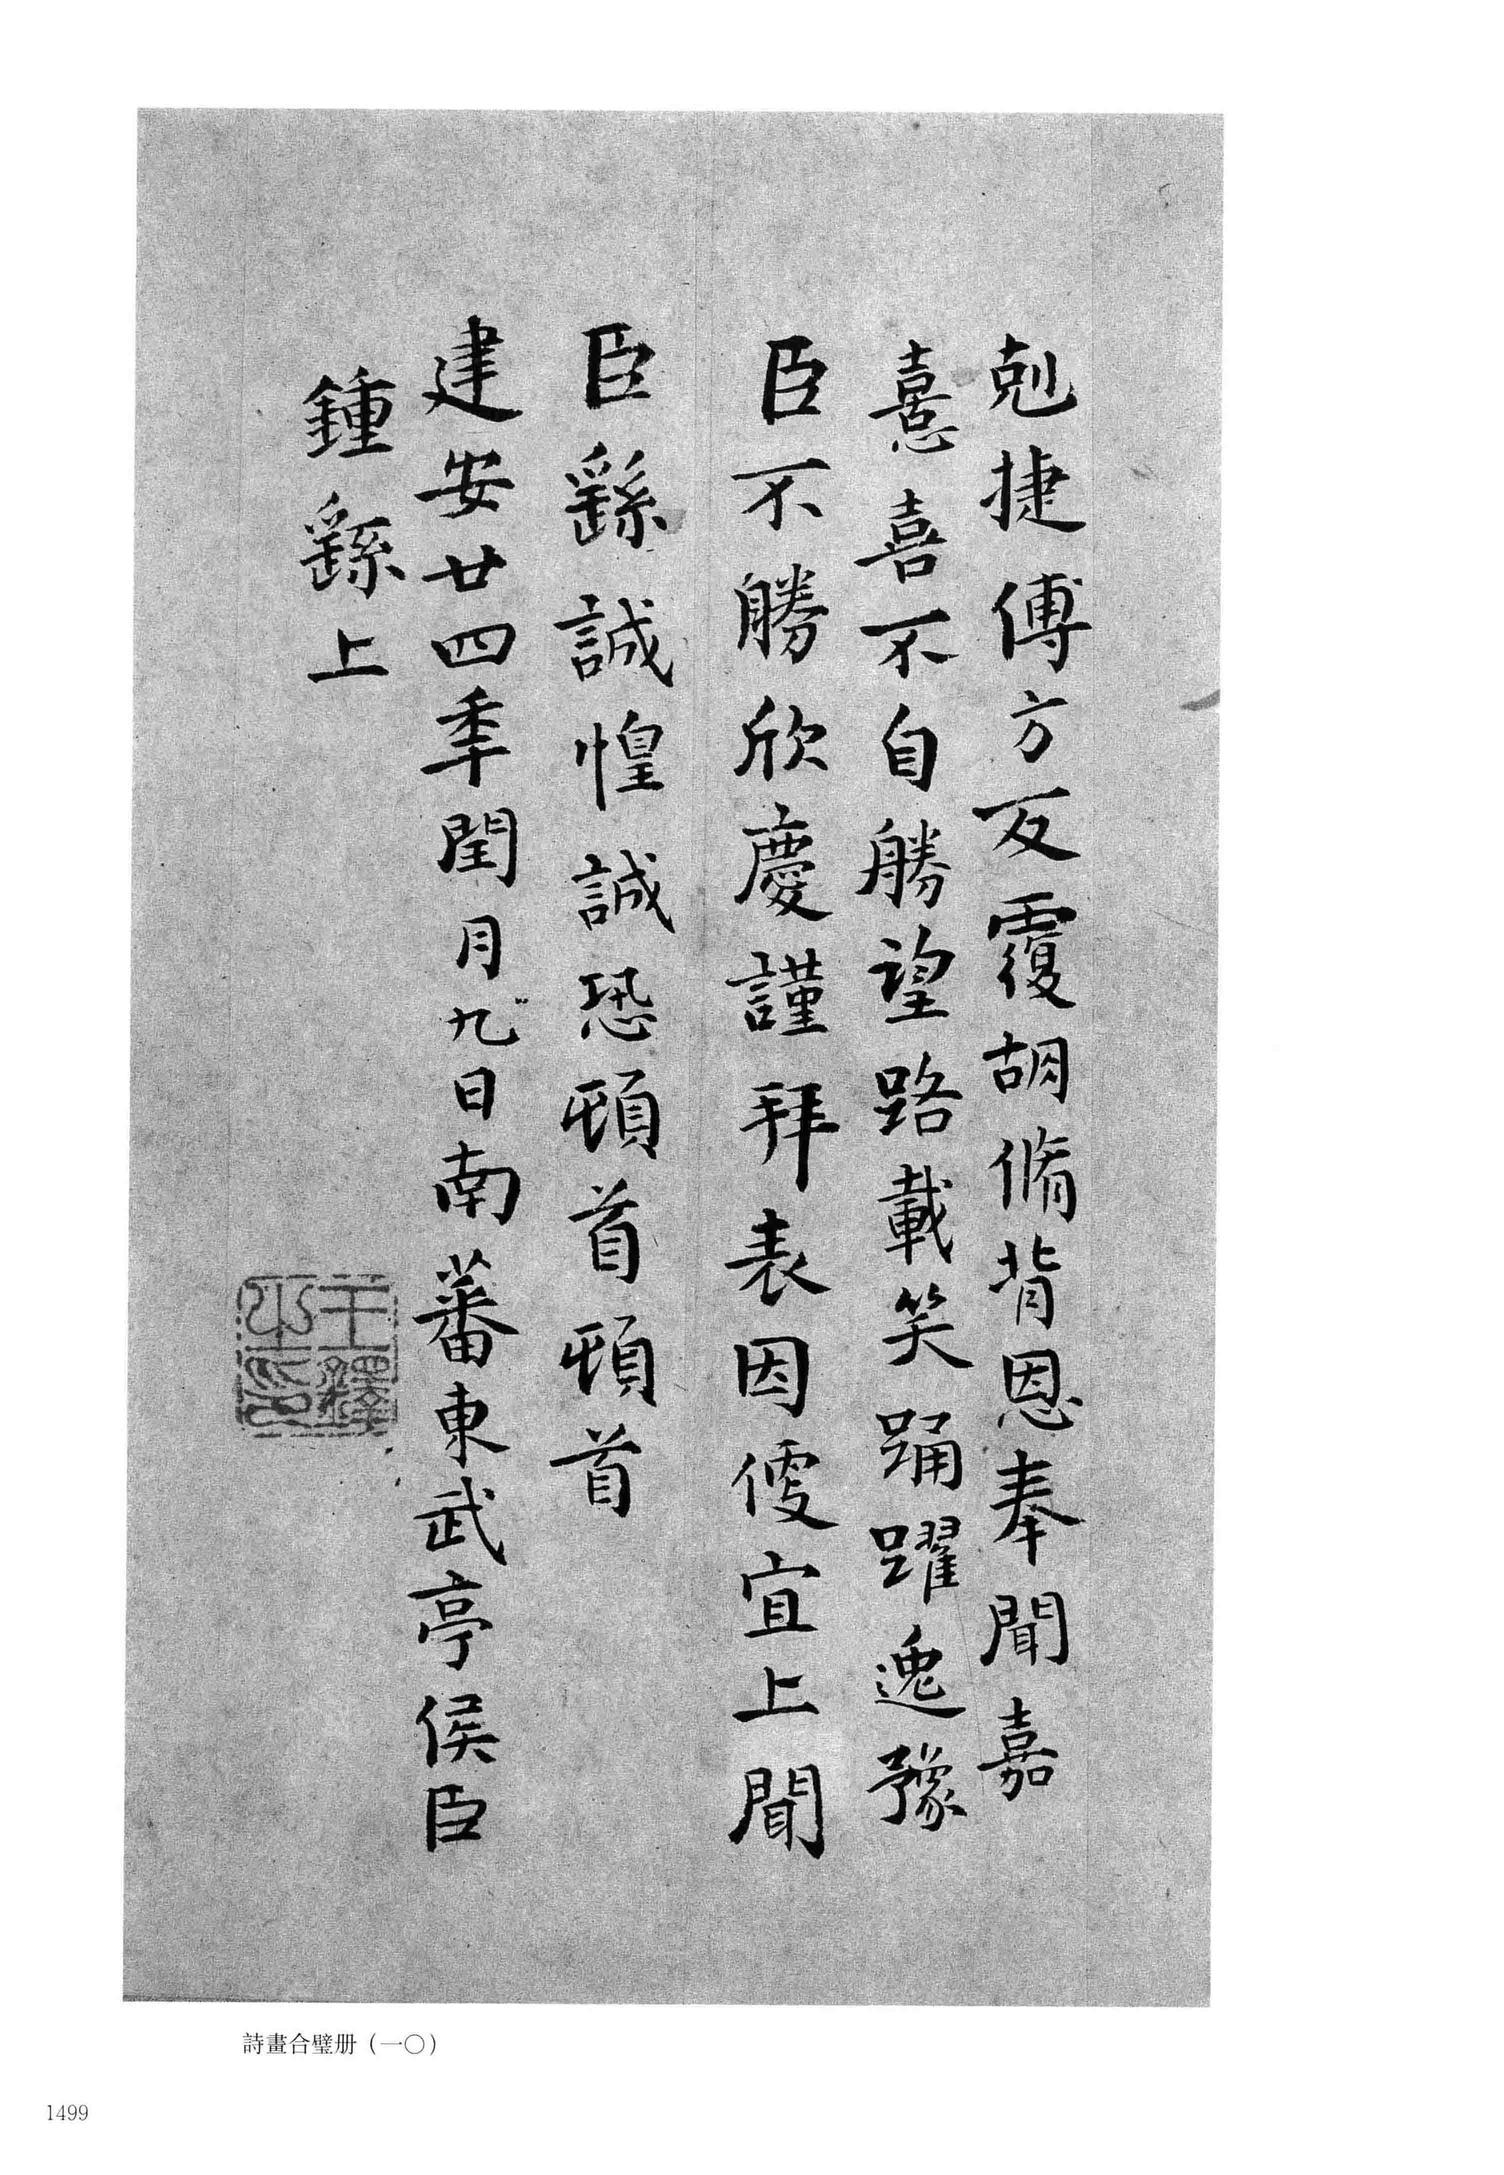 剋捷傅方反覆胡脩背恩奉聞嘉
憙喜不自勝望路載笑踊躍逸豫
臣不勝欣慶謹拜表因便宜上聞
臣繇誠惶誠恐頓首頓首
建安廿四年閏月九日南蕃東武亭侯臣
鍾繇上
王鐸之印
詩畫合璧册（一〇）
1499